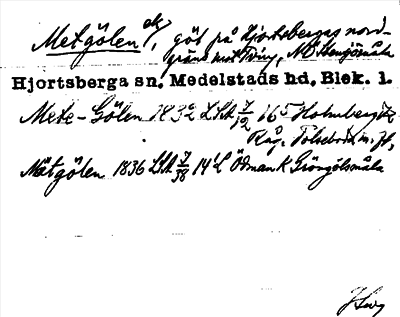 Metgölen ek/, göl på Hjortsbergas nord-
gräns mot Tving, NÖ Stengömåla
Hjortsberga sn. Medelstads hd. Blek. l.
Mete-Gölen 1832 LSA 7/12 165 Holmberg
Råg. Tolseboda m. fl.
Mätgölen 1836 LSA 7/38 14 L Ödman K Gröngölsmåla